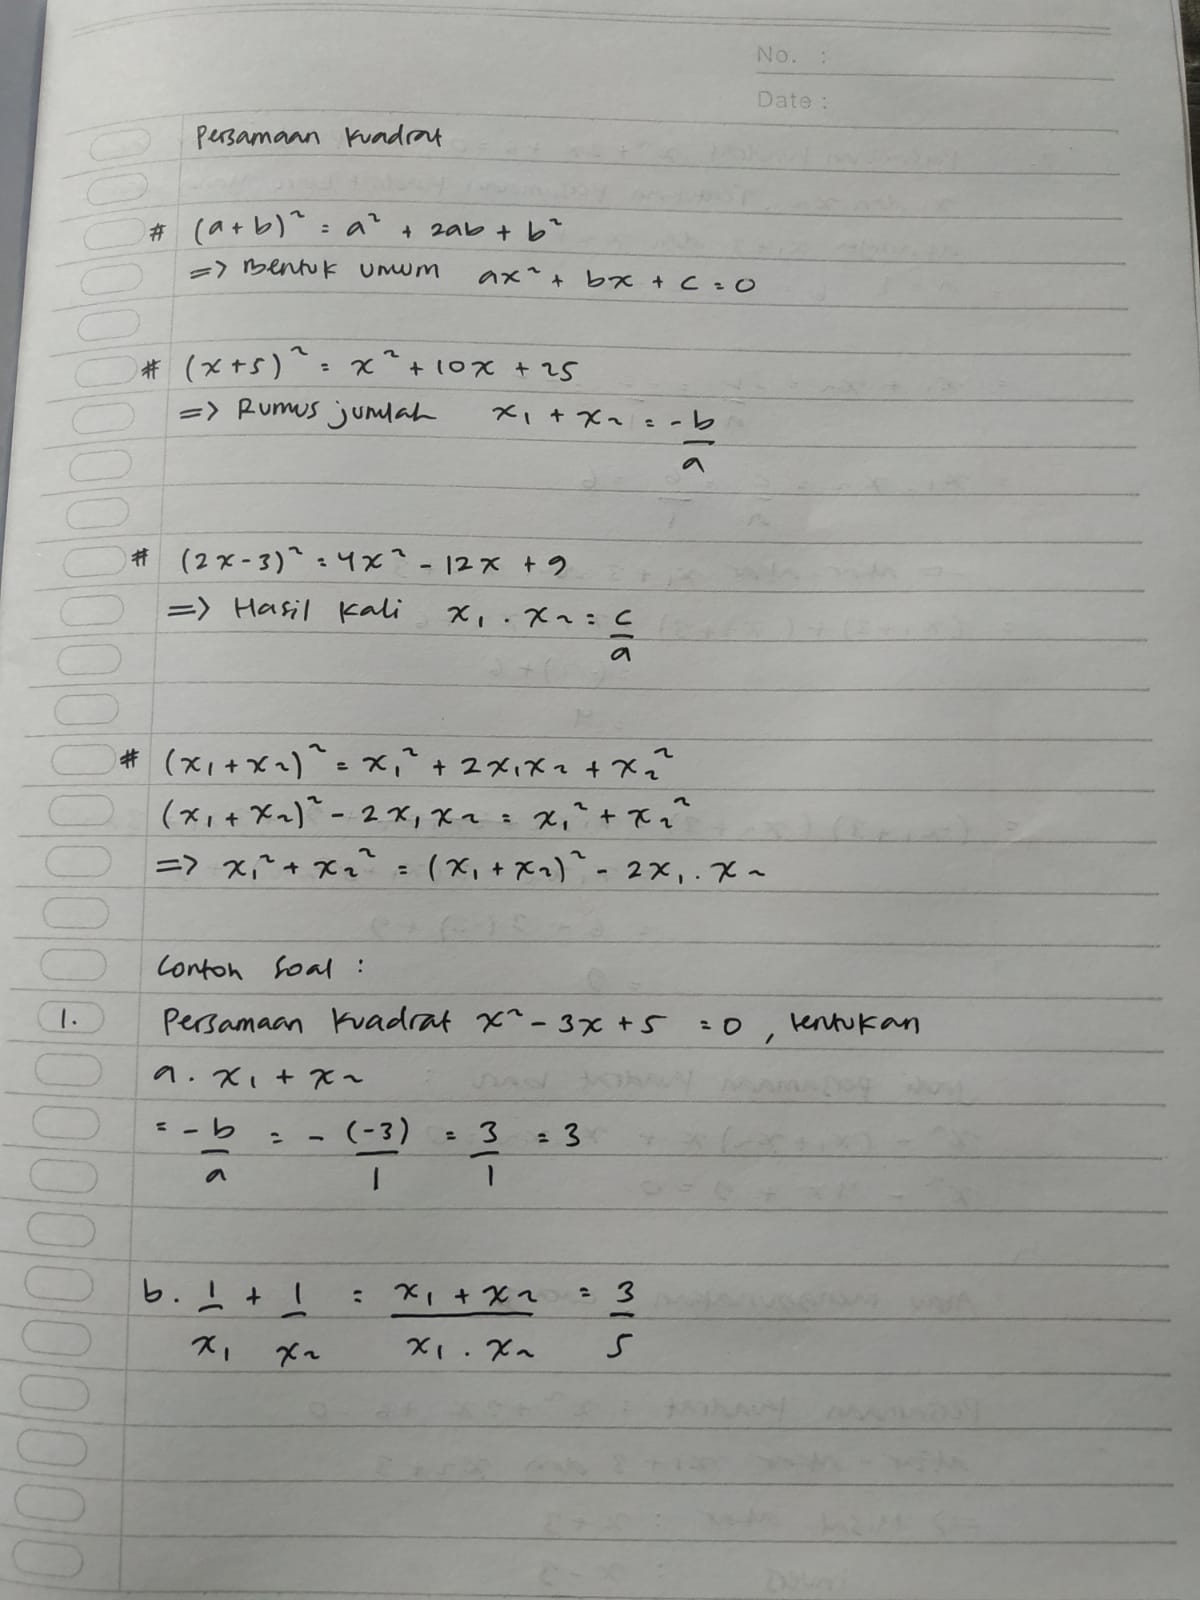 No. :
Date :
Persamaan Kuadrat
# (a+b)² = a² + 2ab + b²
=> Bentuk umum ax² + bx + c = 0
# (x+5)² = x² + 10x + 25
=> Rumus jumlah x₁ + x₂ = -b/a
# (2x-3)² = 4x² - 12x + 9
=> Hasil kali x₁ . x₂ = c/a
# (x₁+x₂)² = x₁² + 2x₁x₂ + x₂²
(x₁+x₂)² - 2x₁x₂ = x₁² + x₂²
=> x₁² + x₂² = (x₁+x₂)² - 2x₁.x₂
Contoh Soal :
1. Persamaan Kuadrat x² - 3x + 5 = 0, tentukan
a. x₁ + x₂
= -b/a = -(-3)/1 = 3/1 = 3
b. 1/x₁ + 1/x₂ = (x₁ + x₂)/(x₁ . x₂) = 3/5